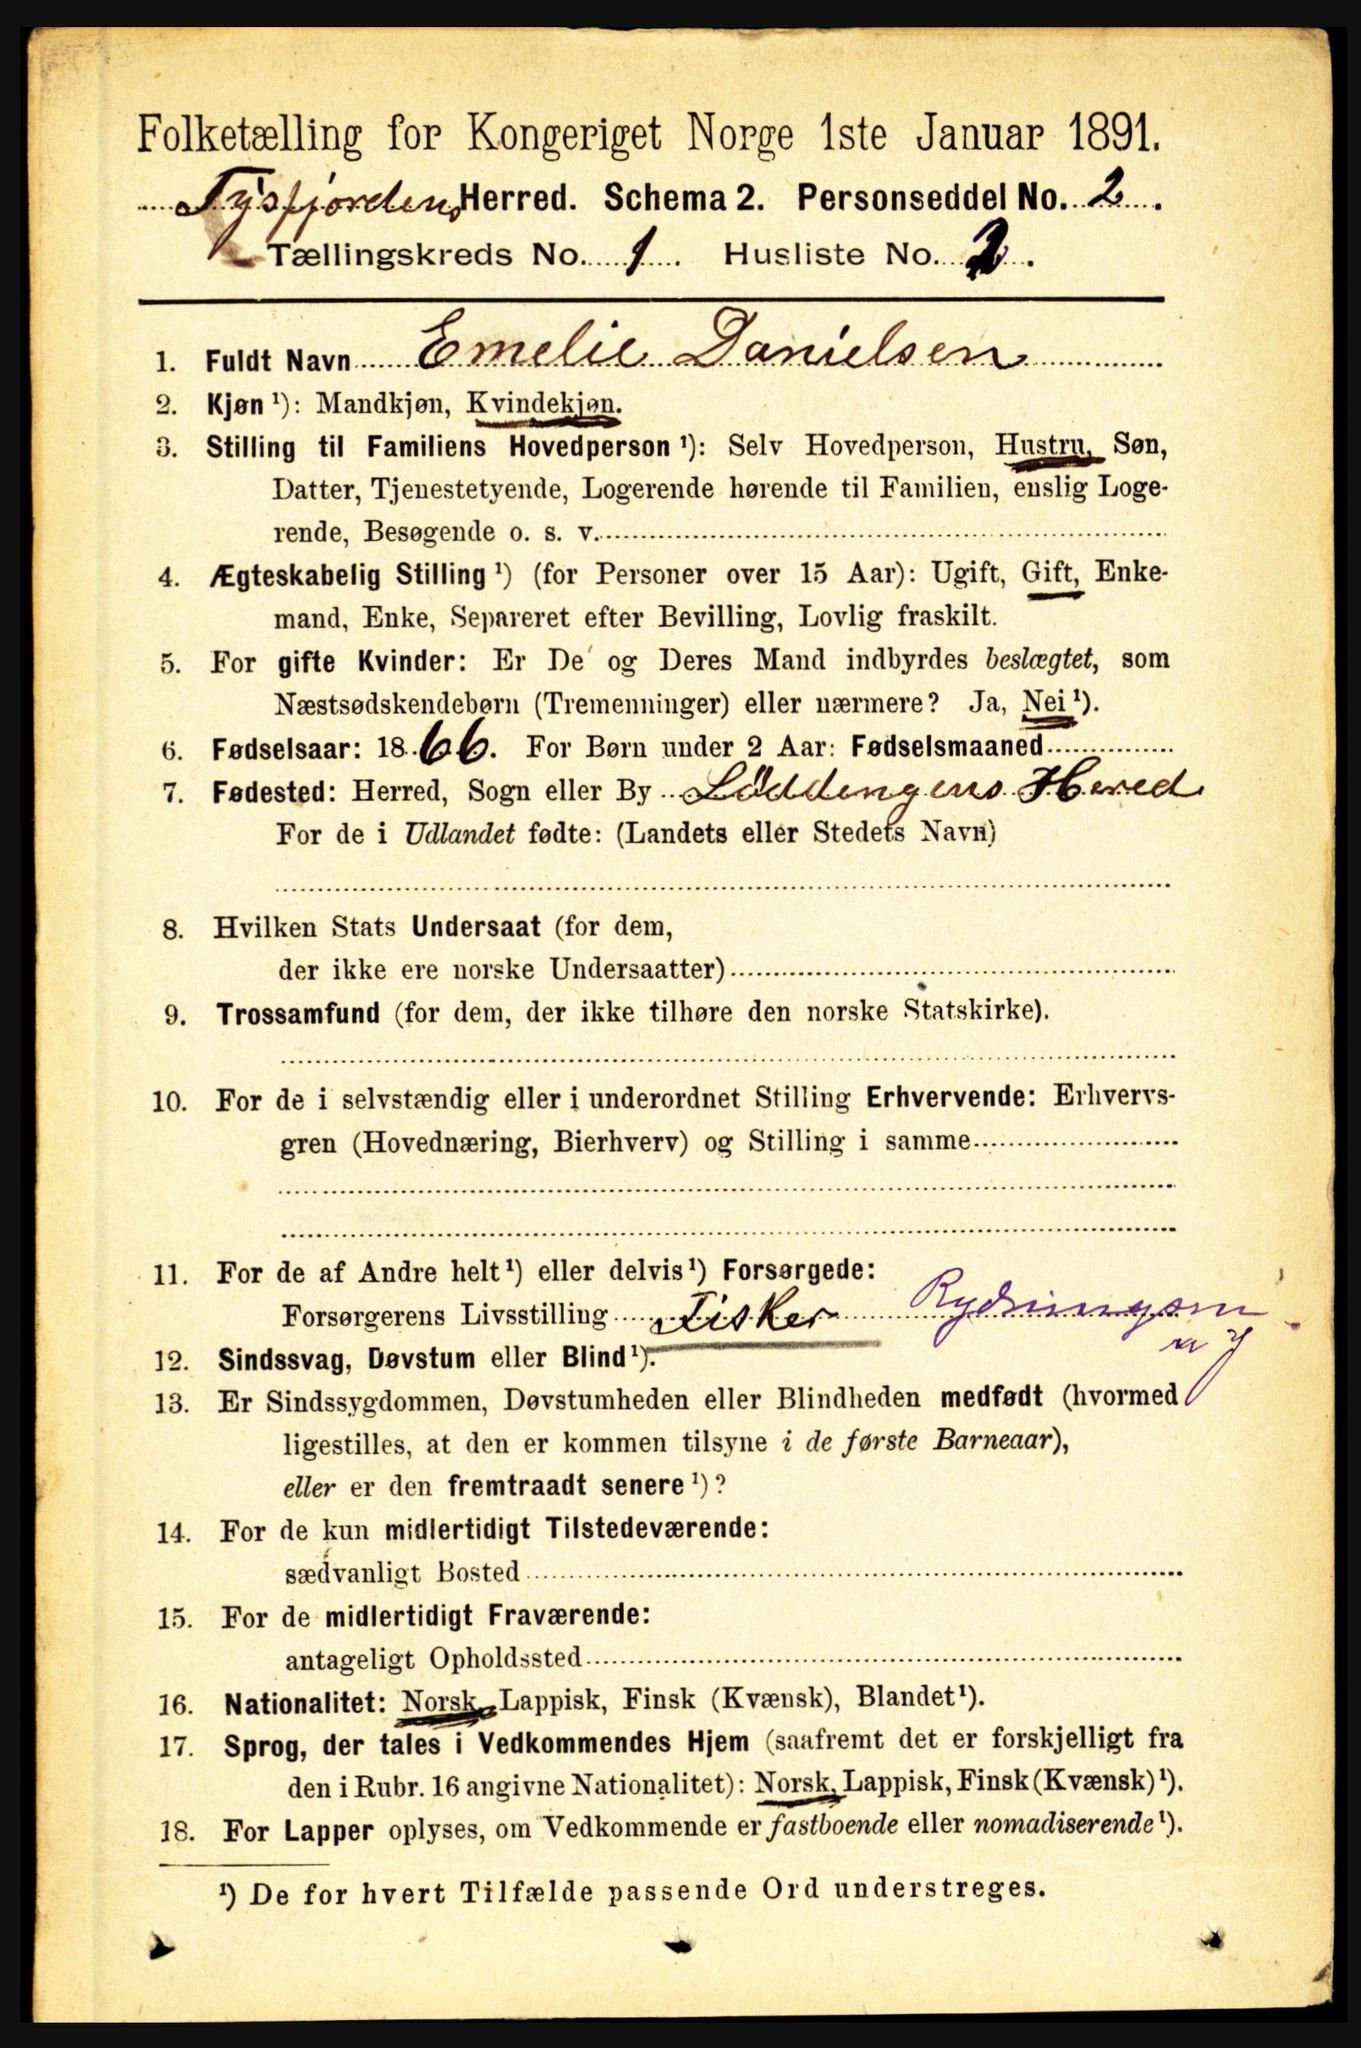 Folketælling for Kongeriget Norge 1ste Januar 1891.
Tysfjordens Herred. Schema 2. Personseddel No. 2.
Tællingskreds No. 1. Husliste No. 2.
1. Fuldt Navn Emelie Danielsen
2. Kjøn ¹): Mandkjøn, Kvindekjøn.
3. Stilling til Familiens Hovedperson ¹): Selv Hovedperson, Hustru, Søn,
Datter, Tjenestetyende, Logerende hørende til Familien, enslig Loge-
rende, Besøgende o. s. v.
4. Ægteskabelig Stilling ¹) (for Personer over 15 Aar): Ugift, Gift, Enke-
mand, Enke, Separeret efter Bevilling, Lovlig fraskilt.
5. For gifte Kvinder: Er De og Deres Mand indbyrdes beslægtet, som
Næstsødskendebørn (Tremenninger) eller nærmere? Ja, Nei ¹).
6. Fødselsaar: 1866. For Børn under 2 Aar: Fødselsmaaned
7. Fødested: Herred, Sogn eller By Löddingens Hered
For de i Udlandet fødte: (Landets eller Stedets Navn)
8. Hvilken Stats Undersaat (for dem,
der ikke ere norske Undersaatter)
9. Trossamfund (for dem, der ikke tilhøre den norske Statskirke).
10. For de i selvstændig eller i underordnet Stilling Erhvervende: Erhvervs-
gren (Hovednæring, Bierhverv) og Stilling i samme
11. For de af Andre helt ¹) eller delvis ¹) Forsørgede:
Forsørgerens Livsstilling Fisker
12. Sindssvag, Døvstum eller Blind ¹).
13. Er Sindssygdommen, Døvstumheden eller Blindheden medfødt (hvormed
ligestilles, at den er kommen tilsyne i de første Barneaar),
eller er den fremtraadt senere ¹)?
14. For de kun midlertidigt Tilstedeværende:
sædvanligt Bosted
15. For de midlertidigt Fraværende:
antageligt Opholdssted
16. Nationalitet: Norsk, Lappisk, Finsk (Kvænsk), Blandet ¹).
17. Sprog, der tales i Vedkommendes Hjem (saafremt det er forskjelligt fra
den i Rubr. 16 angivne Nationalitet): Norsk, Lappisk, Finsk (Kvænsk) ¹).
18. For Lapper oplyses, om Vedkommende er fastboende eller nomadiserende ¹).
¹) De for hvert Tilfælde passende Ord understreges.